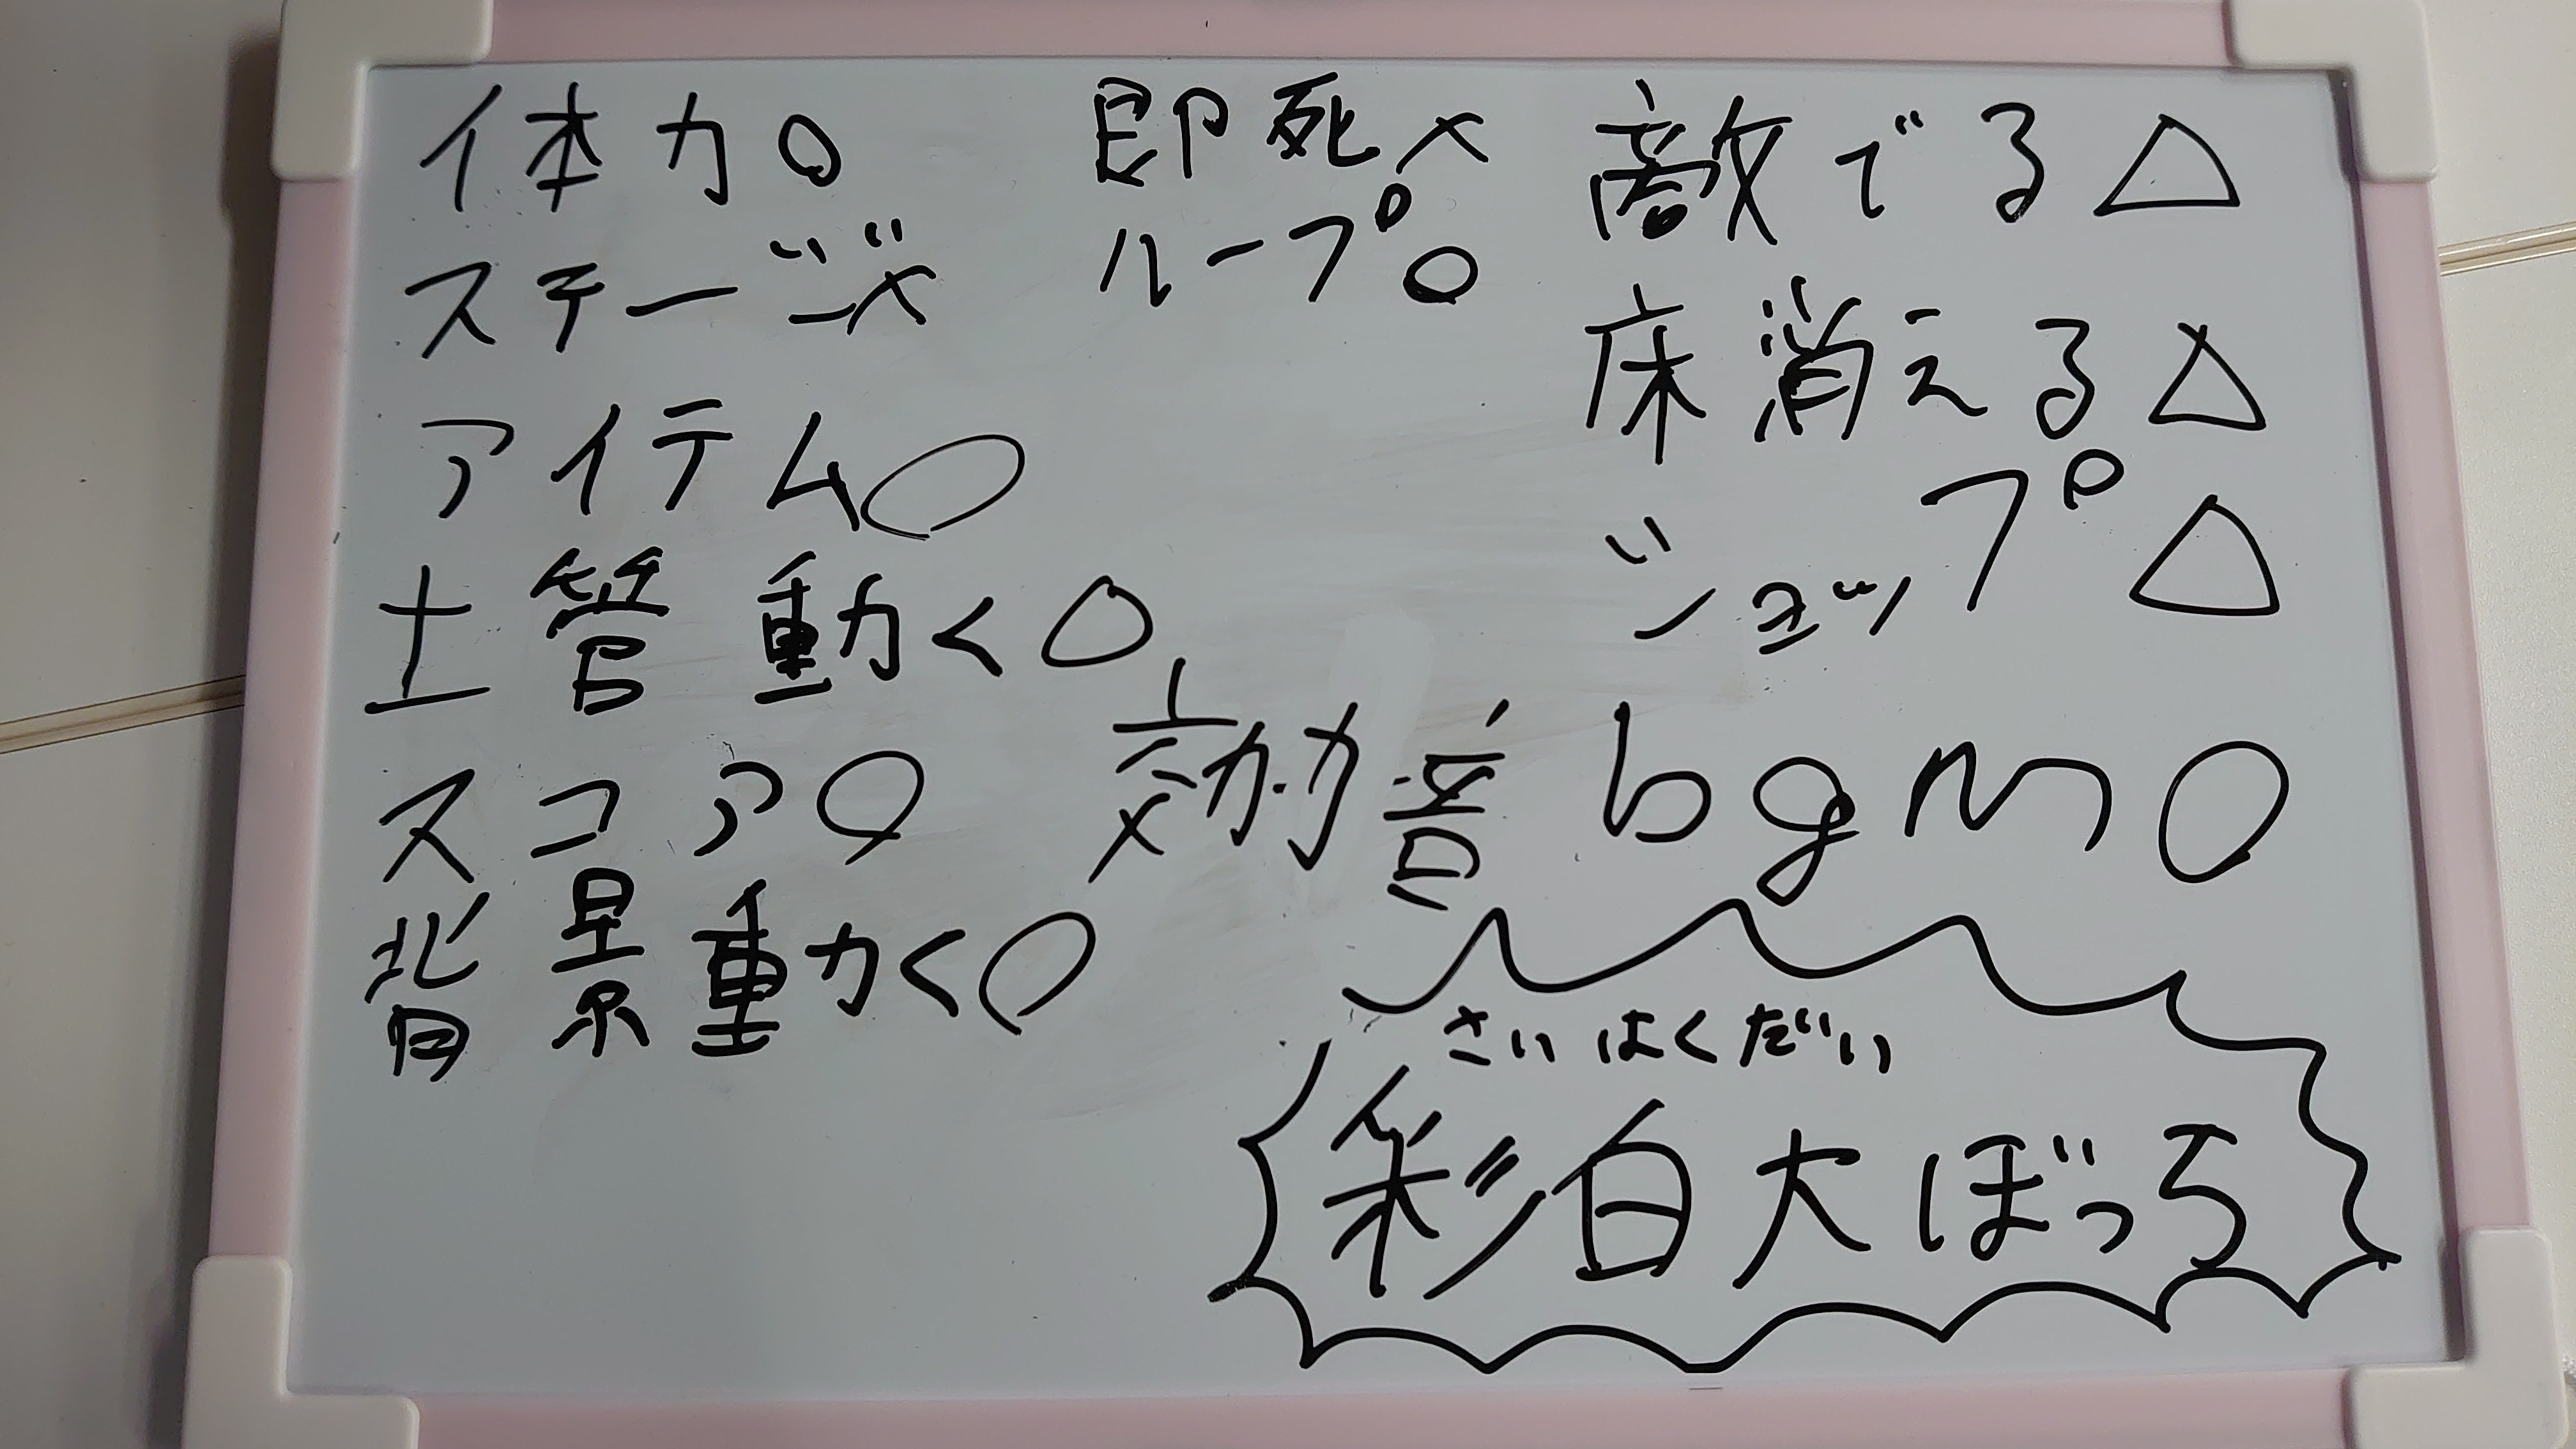 体力○
ステージ×
アイテム○
土管動く○
スコア○
背景動く○
即死×
ループ○
敵でる△
床消える△
ショップ△
効果音 bgm○
さいはくだい
彩白大ぼっち